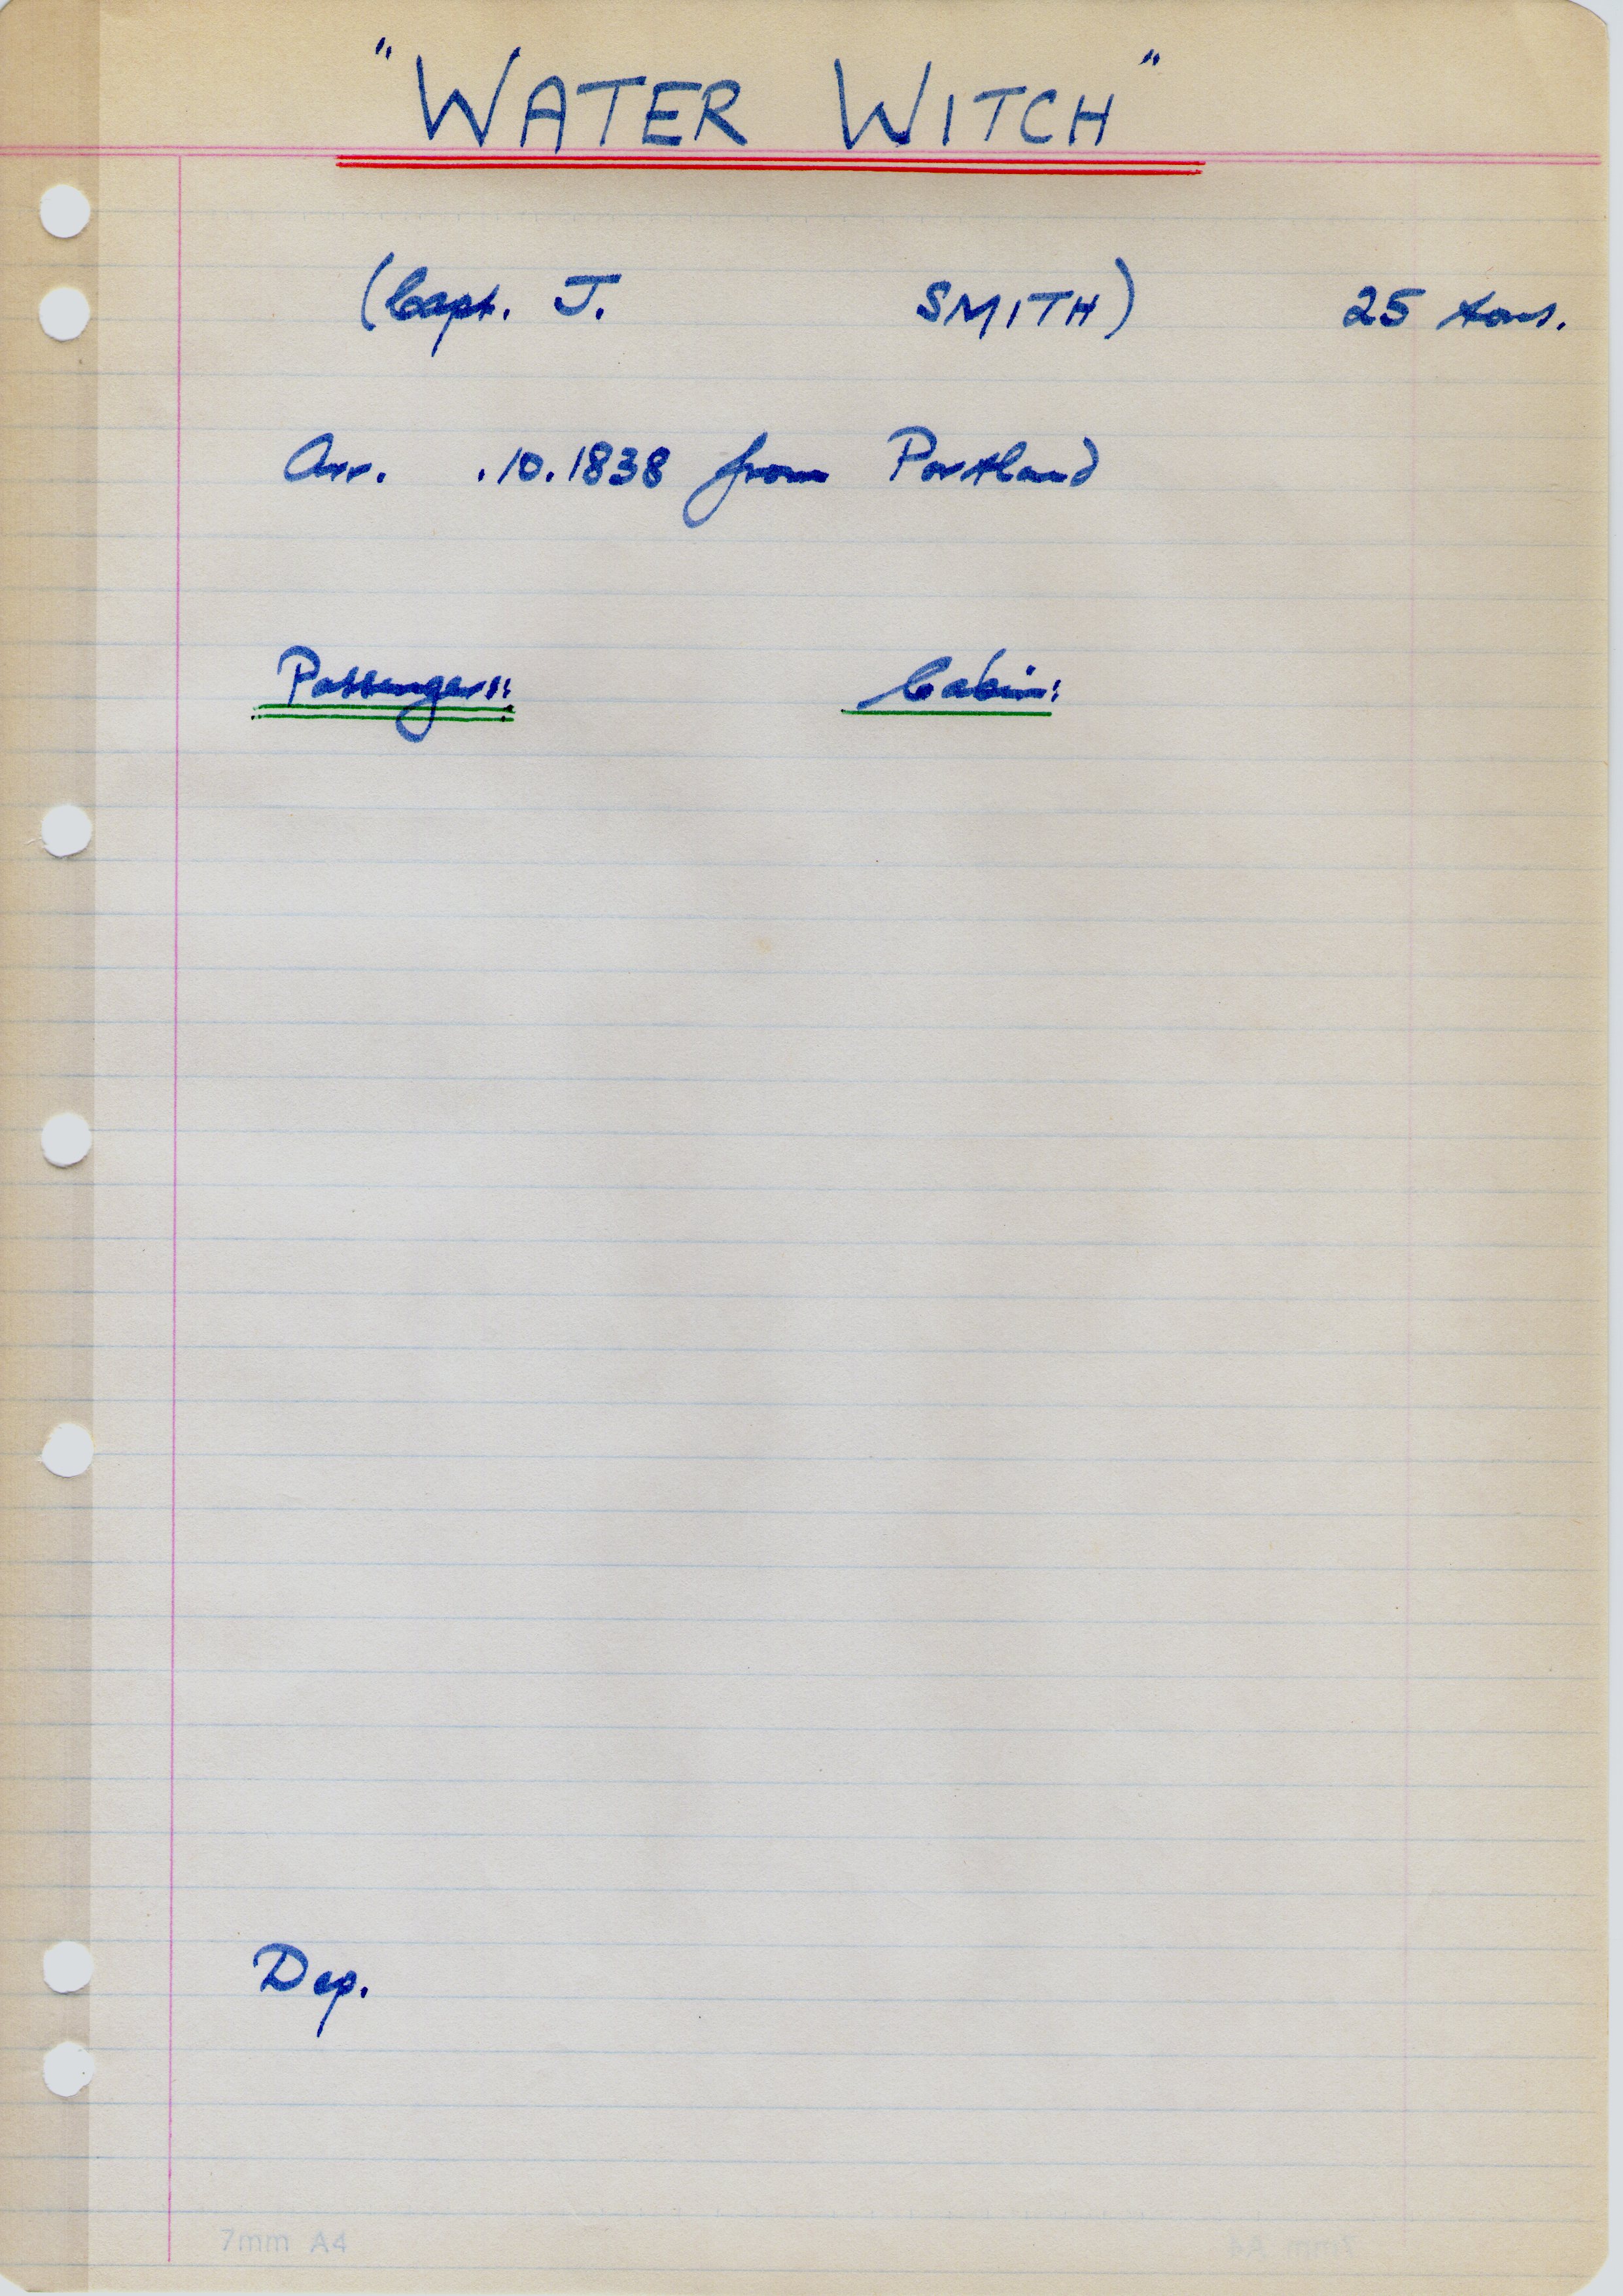 "WATER WITCH"
(Capt. J. SMITH) 25 tons.
Arr. .10.1838 from Portland
Passengers: Cabin:
Dep.
7mm A4